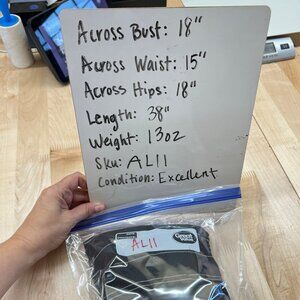 Across Bust: 18"
Across Waist: 15"
Across Hips: 18"
Length: 38"
Weight: 13oz
Sku: AL11
Condition: Excellent
AL11
Great Value